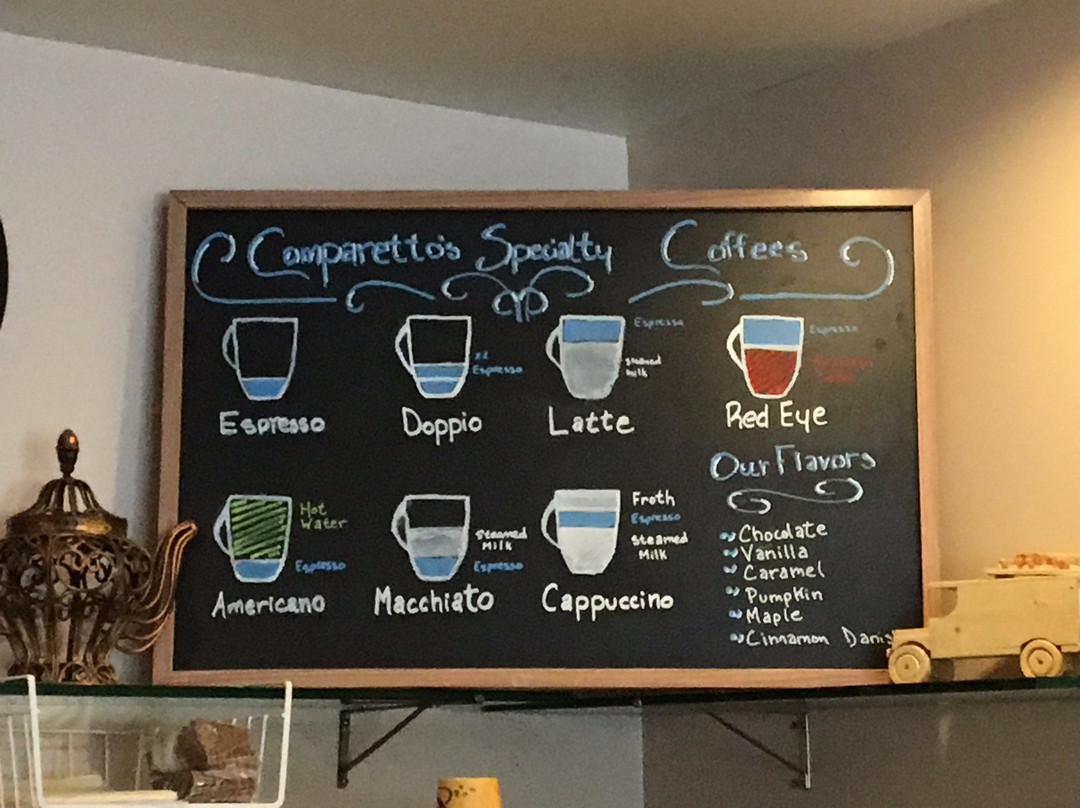 Comparetto's Specialty Coffees
Espresso
x2
Espresso
Doppio
Espresso
steamed
milk
Latte
Espresso
Red Eye
Hot
Water
Espresso
Americano
Steamed
Milk
Espresso
Macchiato
Froth
Espresso
Steamed
Milk
Cappuccino
Our Flavors
Chocolate
Vanilla
Caramel
Pumpkin
Maple
Cinnamon